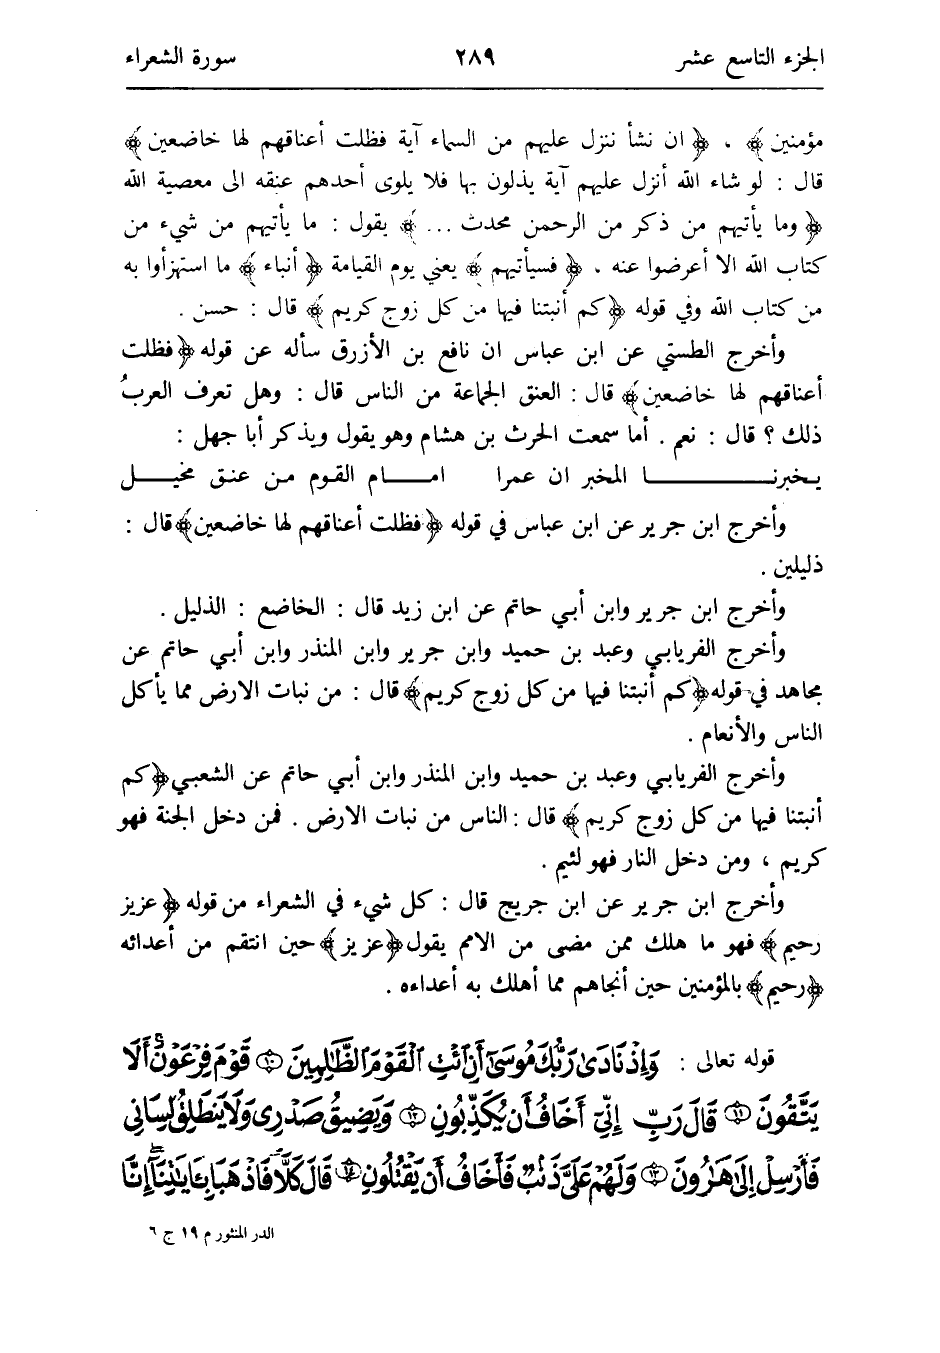 الجزء التاسع عشر ٢٨٩ سورة الشعراء
مؤمنين﴾ ، ﴿ ان نشأ ننزل عليهم من السماء آية فظلت أعناقهم لها خاضعين﴾
قال : لو شاء الله أنزل عليهم آية يذلون بها فلا يلوى أحدهم عنقه الى معصية الله
﴿ وما يأتيهم من ذكر من الرحمن محدث ... ﴾ يقول : ما يأتيهم من شيء من
كتاب الله الا أعرضوا عنه ، ﴿ فسيأتيهم ﴾ يعني يوم القيامة ﴿ أنباء ﴾ ما استهزأوا به
من كتاب الله وفي قوله ﴿كم أنبتنا فيها من كل زوج كريم ﴾ قال : حسن .
وأخرج الطستي عن ابن عباس ان نافع بن الأزرق سأله عن قوله ﴿فظلت
أعناقهم لها خاضعين﴾ قال : العنق الجماعة من الناس قال : وهل تعرف العربُ
ذلك ؟ قال : نعم . أما سمعت الحرث بن هشام وهو يقول ويذكر أبا جهل :
يخبرنا المخبر ان عمرا امام القوم من عنق مخيل
وأخرج ابن جرير عن ابن عباس في قوله ﴿فظلت أعناقهم لها خاضعين﴾قال :
ذليلين .
وأخرج ابن جرير وابن أبي حاتم عن ابن زيد قال : الخاضع : الذليل .
وأخرج الفريابي وعبد بن حميد وابن جرير وابن المنذر وابن أبي حاتم عن
مجاهد في قوله﴿كم أنبتنا فيها من كل زوج كريم﴾قال : من نبات الارض مما يأكل
الناس والأنعام .
وأخرج الفريابي وعبد بن حميد وابن المنذر وابن أبي حاتم عن الشعبي﴿كم
أنبتنا فيها من كل زوج كريم﴾ قال :الناس من نبات الارض . فمن دخل الجنة فهو
كريم ، ومن دخل النار فهو لئيم .
وأخرج ابن جرير عن ابن جريج قال : كل شيء في الشعراء من قوله ﴿عزيز
رحيم﴾ فهو ما هلك ممن مضى من الامم يقول﴿عزيز﴾حين انتقم من أعدائه
﴿رحيم﴾ بالمؤمنين حين أنجاهم مما أهلك به أعداءه .
قوله تعالى : وَإِذْ نَادَىٰ رَبُّكَ مُوسَىٰٓ أَنِ ائْتِ الْقَوْمَ الظَّٰلِمِينَ ۝١٠ قَوْمَ فِرْعَوْنَ ۚ أَلَا
يَتَّقُونَ ۝١١ قَالَ رَبِّ إِنِّىٓ أَخَافُ أَن يُكَذِّبُونِ ۝١٢ وَيَضِيقُ صَدْرِى وَلَا يَنطَلِقُ لِسَانِى
فَأَرْسِلْ إِلَىٰ هَٰرُونَ ۝١٣ وَلَهُمْ عَلَىَّ ذَنۢبٌ فَأَخَافُ أَن يَقْتُلُونِ ۝١٤ قَالَ كَلَّا ۖ فَاذْهَبَا بِـَٔايَٰتِنَآ ۖ إِنَّا
الدر المنثور م ١٩ ج ٦